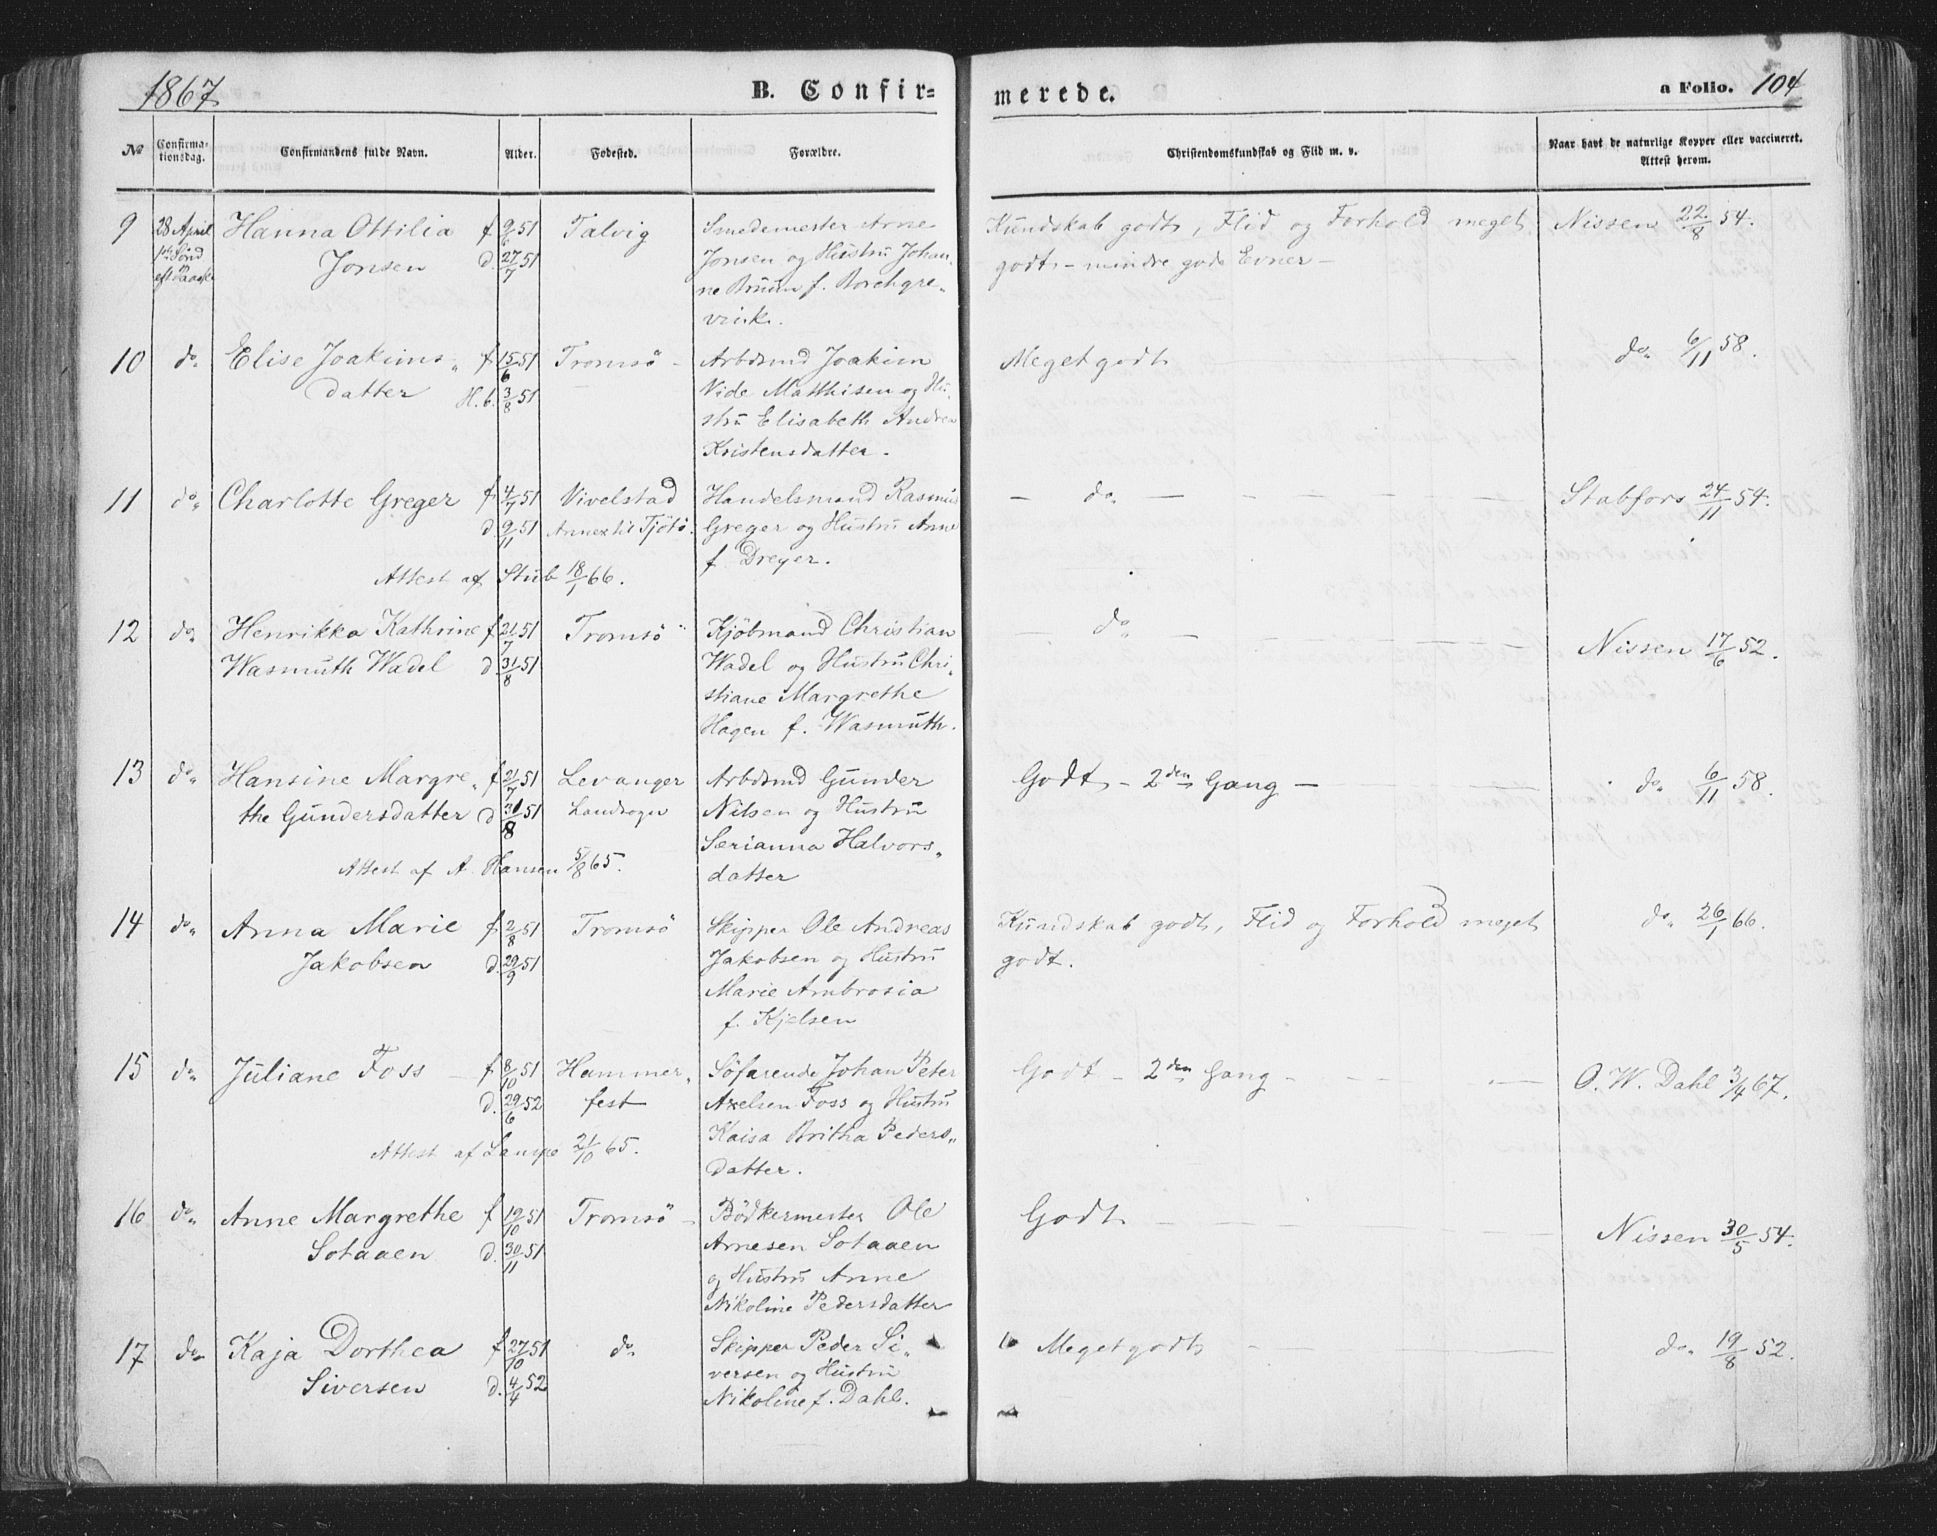 1867
B. Confir=
merede.
a Folio. 104
No
Confirma-
tionsdag.
Confirmandens fulde Navn.
Alder.
Fødested.
Forældre.
Christendomskundskab og Flid m. v.
Naar havt de naturlige Kopper eller vaccineret.
Attest herom.
9 28 April Hanna Ottilia f 9/6 51 Talvig Smedemester Arne Kundskab godt, Flid og Forhold meget Nissen 22/8 54.
1ste Sønd
eft Paaske
Jonsen d. 27/7 51 Jonsen og Hustru Johan- godt – mindre gode Evner –
ne Bruun f. Borchgre-
vink.
10 do Elise Joakims- f 15/6 51 Tromsö – Arbdsmd Joakim Meget godt do 6/11 58.
datter H.b. 3/8 51 Vide Matthisen og Hu-
stru Elisabeth Andrea
Kristensdatter.
11 do Charlotte Greger f 4/7 51 Vivelstad Handelsmand Rasmus – do – Stabfors 24/11 54.
d. 9/11 51 Annex til Tjötö. Greger og Hustru Anne
f. Dreyer.
Attest af Stub 18/1 66.
12 do Henrikka Kathrine f 21/7 51 Tromsö Kjöbmand Christian – do – Nissen 17/6 52.
Wasmuth Wadel d. 31/8 51 Wadel og Hustru Chri-
stiane Margrethe
Hagen f. Wasmuth.
13 do Hansine Margre- f 21/7 51 Levanger Arbdsmd Gunder Godt – 2den Gang – do 6/11 58.
the Gundersdatter d 31/8 51 Landsogn Nilsen og Hustru
Serianna Halvors-
Attest af A. Hansen 5/8 65. datter
14 do Anna Marie f 2/8 51 Tromsö Skipper Ole Andreas Kundskab godt, Flid og Forhold meget do 26/1 66.
Jakobsen d. 29/9 51 Jakobsen og Hustru godt.
Marie Ambrosia
f. Kjelsen
15 do Juliane Foss – f 8/10 51 Hammer- Söfarende Johan Peter Godt – 2den Gang – O. W. Dahl 3/4 67.
d. 29/6 52 fest Axelsen Foss og Hustru
Kaisa Britha Peders-
Attest af Lampe 21/10 65. datter.
16 do Anne Margrethe f 19/10 51 Tromsö – Bödkermester Ole Godt – Nissen 30/5 54.
Sotaaen d. 30/11 51 Arnesen Sotaaen
og Hustru Anne
Nikoline Pedersdatter
17 do Kaja Dorthea f 27/10 51 do Skipper Peder Si- Meget godt – do 19/8 52.
Siversen d. 4/4 52 versen og Hustru
Nikoline f. Dahl.